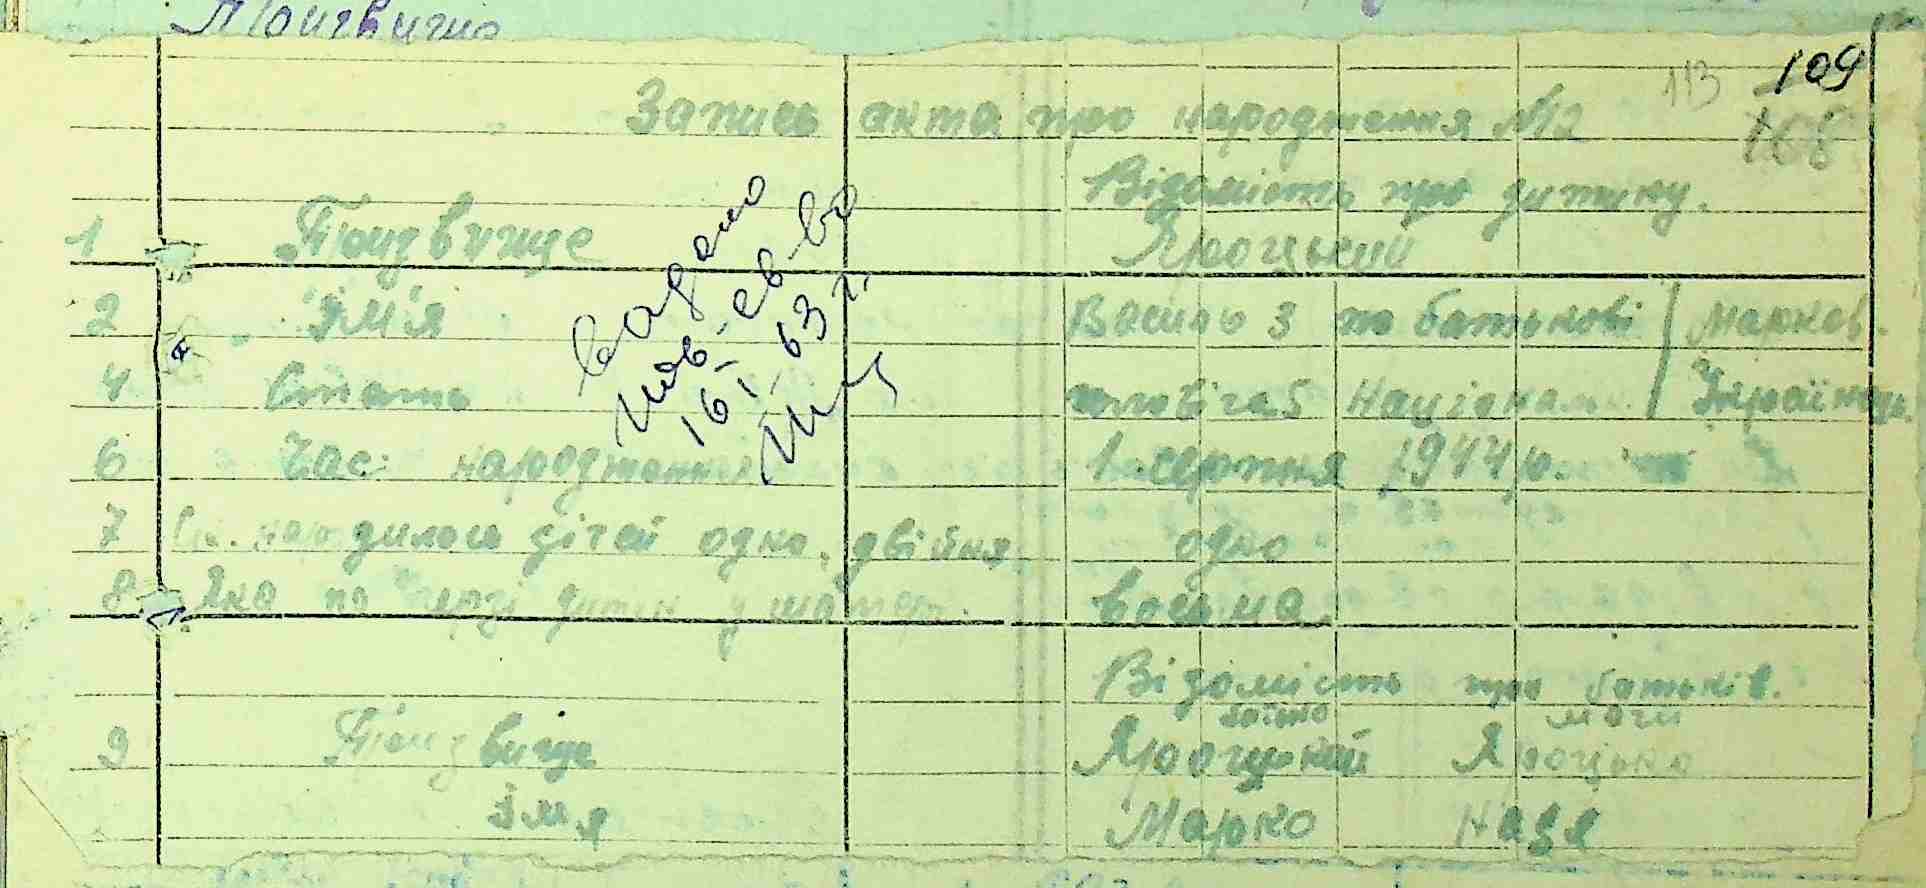 Призвище
109
113
108
Запись акта про народження №12
Відомість про дитину.
1 Призвище Яроцький
2 Імʼя Василь 3 по батькові Марков.
4 Стать чоловіча 5 Націонал. Українець
6 Час народження 1 серпня 1944 р.
7 Ск. народилось дітей одно, двійня одно
8 Яка по черзі дитин у матері. восьма.
видано
нов. св-во
16/I-63 г.
Відомість про батьків.
батько мати
9 Призвище Яроцький Яроцька
Імя Марко Надя